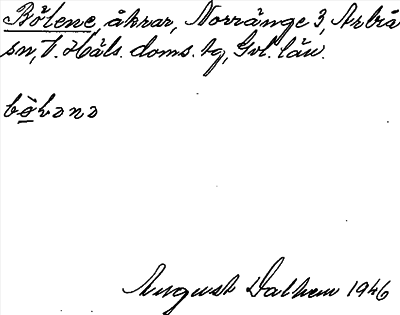 Bölene, åkrar, Norränge 3, Arbrå
sn, V. Häls. doms. tg, Gvl. län.
August Dalhem 1946